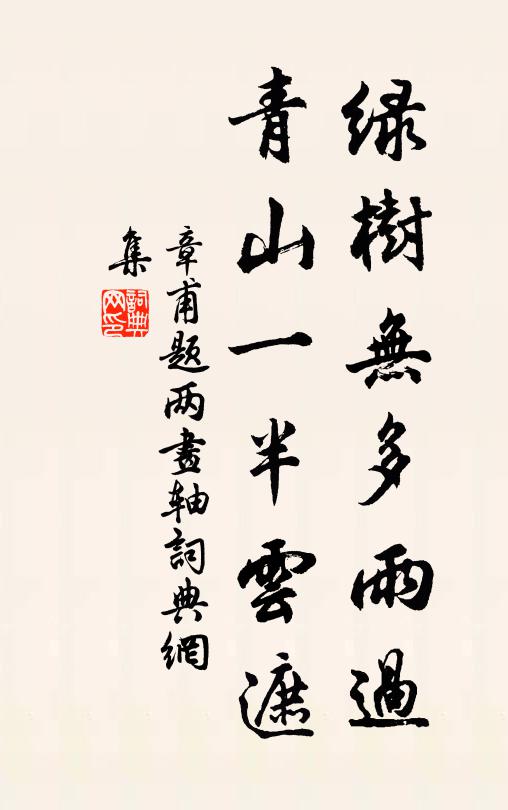 绿樹無多雨過
青山一半雲遮
章甫題两畫軸詞典網
集
詞典
网印